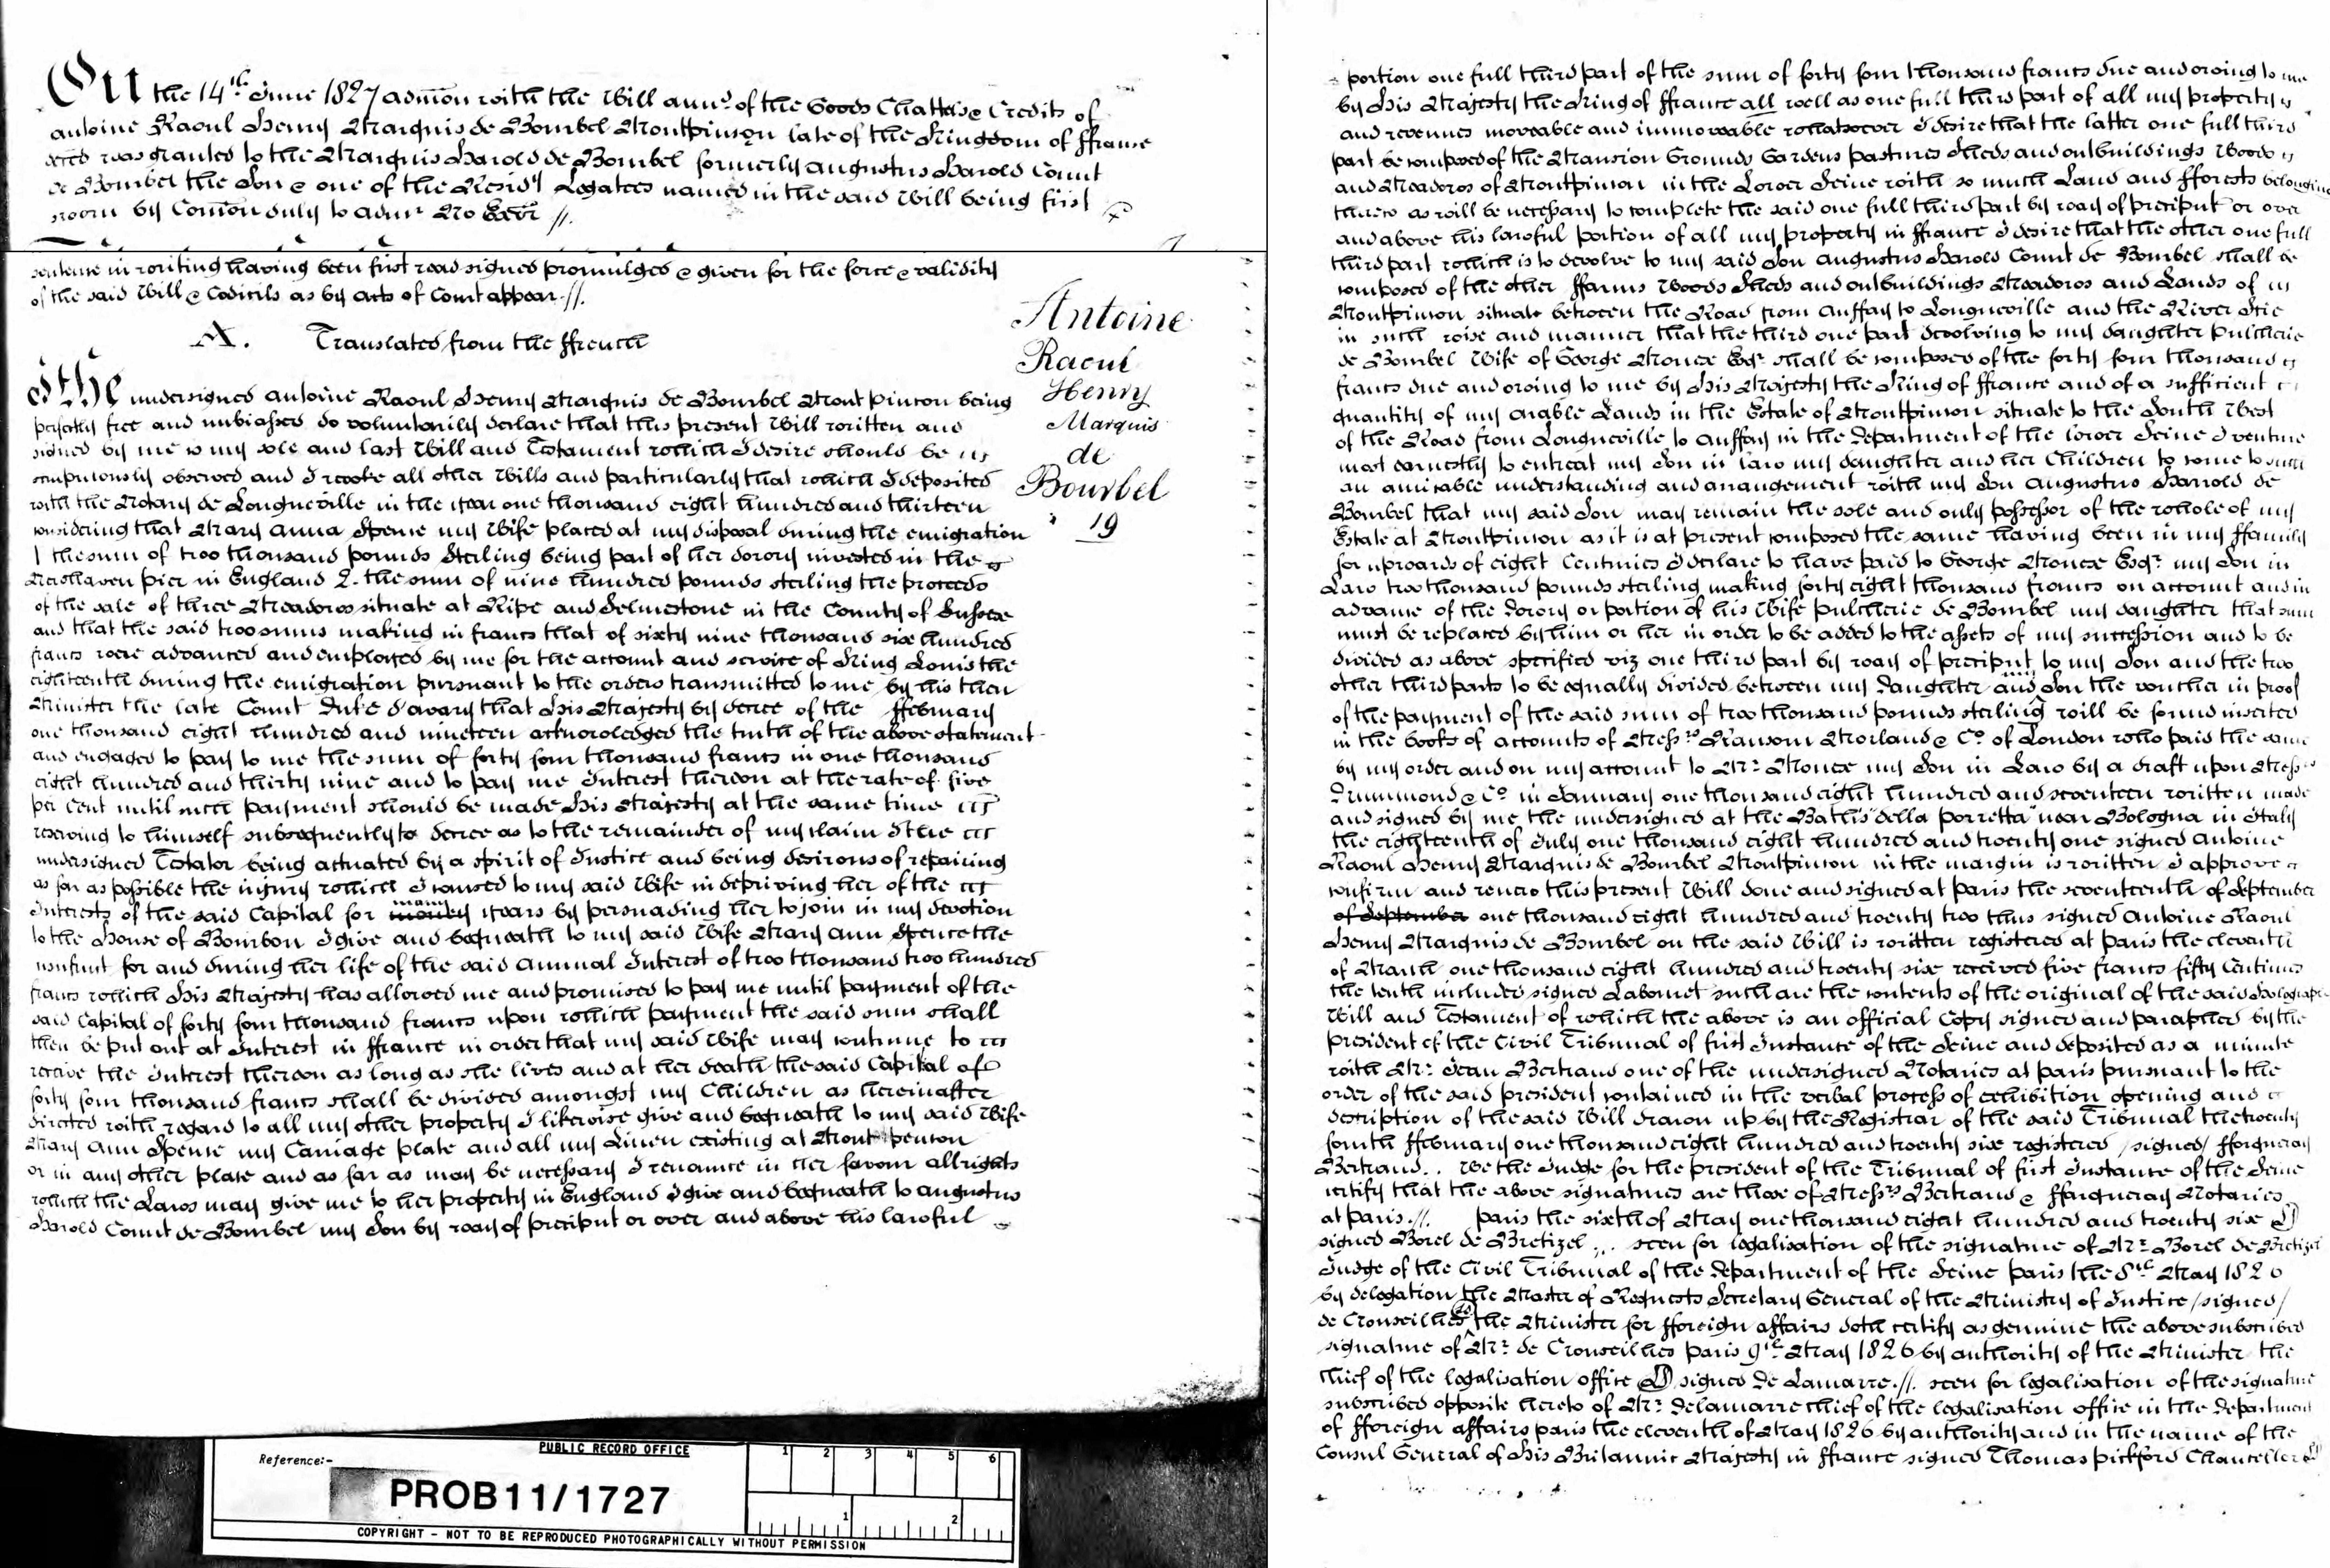 On the 14th June 1827 admon with the Will annd of the Goods Chattels & Credits of
Antoine Raoul Henry Marquis de Bourbel Montpinçon late of the Kingdom of ffrance
decd was granted to the Marquis Harold de Bourbel formerly Augustus Harold Count
de Bourbel the Son & one of the Residy Legatees named in the said Will being first
sworn by Comon duly to admr No Exor //.
sentence in writing having been first read signed promulged & given for the force & validity
of the said Will & Codicils as by Acts of Court appear //.
A. Translated from the ffrench
Antoine
Raoul
Henry
Marquis
de
Bourbel
19
I the undersigned Antoine Raoul Henry Marquis de Bourbel Mont pincon being
perfectly free and unbiassed do voluntarily declare that this present Will written and
signed by me is my sole and last Will and Testament which I desire should be
scrupulously observed and I revoke all other Wills and particularly that which I deposited
with the Notary de Longueville in the year one thousand eight hundred and thirteen
considering that Mary Anna Spence my Wife placed at my disposal during the emigration
1 the sum of two thousand pounds Sterling being part of her dowry invested in the
Newhaven pier in England 2. the sum of nine hundred pounds sterling the proceeds
of the sale of three Meadows situate at Ripe and Selmestone in the County of Sussex
and that the said two sums making in francs that of sixty nine thousand six hundred
francs were advanced and employed by me for the account and service of King Louis the
eighteenth during the emigration pursuant to the orders transmitted to me by his then
Minister the late Count Duke d'avary that His Majesty by decree of the ffebruary
one thousand eight hundred and nineteen acknowledged the truth of the above statement
and engaged to pay to me the sum of forty four thousand francs in one thousand
eight hundred and thirty nine and to pay me Interest thereon at the rate of five
per cent until such payment should be made His Majesty at the same time
reserving to himself subsequently to decree as to the remainder of my claim I the
undersigned Testator being actuated by a spirit of Justice and being desirous of repairing
as far as possible the injury which I caused to my said Wife in depriving her of the
Interests of the said Capital for money many years by persuading her to join in my devotion
to the House of Bourbon I give and bequeath to my said Wife Mary Ann Spence the
usufruit for and during her life of the said Annual Interest of two thousand two hundred
francs which His Majesty has allowed me and promised to pay me until payment of the
said Capital of forty four thousand francs upon which payment the said sum shall
then be put out at Interest in ffrance in order that my said Wife may continue to
receive the Interest thereon as long as she lives and at her death the said Capital of
forty four thousand francs shall be divided amongst my Children as hereinafter
directed with regard to all my other property I likewise give and bequeath to my said Wife
Mary Ann Spence my Carriage plate and all my Linen existing at Mont penson
or in any other place and as far as may be necessary I renounce in her favour all rights
which the Laws may give me to her property in England I give and bequeath to Augustus
Harold Count de Bourbel my Son by way of preciput or over and above his lawful
portion one full third part of the sum of forty four thousand francs due and owing to me
by His Majesty the King of ffrance all well as one full third part of all my property
and revenues moveable and immoveable whatsoever I desire that the latter one full third
part be composed of the Mansion Grounds Gardens pastures Sheds and outbuildings Woods
and Meadows of Montpinson in the Lower Seine with so much Land and fforests belonging
thereto as will be necessary to complete the said one full third part by way of preciput or over
and above his lawful portion of all my property in ffrance I desire that the other one full
third part which is to devolve to my said Son Augustus Harold Count de Bourbel shall be
composed of the other ffarms Woods Sheds and outbuildings Meadows and Lands of
Montpinson situate between the Road from Auffay to Longueville and the River Scie
in such wise and manner that the third one part devolving to my daughter pulcherie
de Bourbel Wife of George Monce Esqr shall be composed of the forty four thousand
francs due and owing to me by His Majesty the King of ffrance and of a sufficient
quantity of my arable Lands in the Estate of Montpinson situate to the South West
of the Road from Longueville to Auffay in the Department of the lower Seine I venture
most earnestly to entreat my Son in law my daughter and her Children to come to such
an amicable understanding and arrangement with my Son Augustus Harrold de
Bourbel that my said Son may remain the sole and only possessor of the whole of my
Estate at Montpinson as it is at present composed the same having been in my ffamily
for upwards of eight Centuries I declare to have paid to George Monce Esqr my Son in
Law two thousand pounds sterling making forty eight thousand francs on account and in
advance of the dowry or portion of his Wife pulcherie de Bourbel my daughter that sum
must be replaced by him or her in order to be added to the assets of my succession and to be
divided as above specified viz one third part by way of preciput to my Son and the two
other third parts to be equally divided between my Daughter and my Son the voucher in proof
of the payment of the said sum of two thousand pounds sterling will be found inserted
in the books of accounts of Messrs Ransom Morland & Co of London who paid the same
by my order and on my account to Mr Monce my Son in Law by a draft upon Messrs
Drummond & Co in January one thousand eight hundred and seventeen written made
and signed by me the undersigned at the Baths "della porretta" near Bologna in Italy
the eighteenth of July one thousand eight hundred and twenty one signed Antoine
Raoul Henry Marquis de Bourbel Montpinson in the margin is written I approve
confirm and renew this present Will done and signed at paris the seventeenth of September
of September one thousand eight hundred and twenty two thus signed Antoine Raoul
Henry Marquis de Bourbel on the said Will is written registered at paris the eleventh
of March one thousand eight hundred and twenty six received five francs fifty Centimes
the tenth included signed Labouret such are the contents of the original of the said Holograph
Will and Testament of which the above is an official Copy signed and paraphed by the
president of the Civil Tribunal of first Instance of the Seine and deposited as a minute
with Mr Jean Bertrand one of the undersigned Notaries at paris pursuant to the
order of the said president contained in the verbal process of exhibition opening and
description of the said Will drawn up by the Registrar of the said Tribunal the twenty
fourth ffebruary one thousand eight hundred and twenty six registered /signed/ fforqueray
Bertrand .. We the Judge for the president of the Tribunal of first Instance of the Seine
certify that the above signatures are those of Messrs Bertrand & ffarqueray Notaries
at paris //. paris the sixth of May one thousand eight hundred and twenty six
signed Borel de Bretizel ... seen for legalisation of the signature of Mr Borel de Bretizel
Judge of the Civil Tribunal of the Department of the Seine paris the 8th May 1826
by delegation the Master of Requests Secretary General of the Ministry of Justice /signed/
de Crouseilhes the Minister for fforeign affairs doth certify as genuine the above subscribed
signature of Mr de Crouseilhes paris 9th May 1826 by authority of the Minister the
Chief of the legalisation office signed De Lamarre //. seen for legalisation of the signature
subscribed opposite hereto of Mr Delamarre chief of the legalisation office in the Department
of fforeign affairs paris the eleventh of May 1826 by authority and in the name of the
Consul General of His Britannic Majesty in ffrance signed Thomas pickford Chancellor
PUBLIC RECORD OFFICE
Reference:-
PROB 11/1727
1 2 3 4 5 6
1 2
COPYRIGHT - NOT TO BE REPRODUCED PHOTOGRAPHICALLY WITHOUT PERMISSION